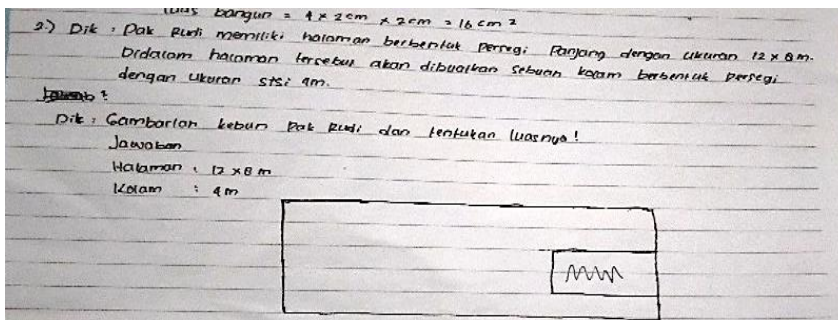 luas bangun = 4 x 2cm x 2cm = 16 cm 2
2.) Dik : Pak Rudi memiliki halaman berbentuk persegi Panjang dengan ukuran 12 x 8 m.
Didalam halaman tersebut akan dibuatkan sebuah kolam berbentuk persegi
dengan ukuran sisi 4m.
Dik : Gambarlah kebun Pak Rudi dan tentukan luasnya !
Jawaban
Halaman : 12 x 8 m
Kolam : 4 m